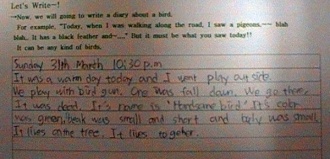 Let's Write~!
→Now, we will going to write a diary about a bird.
For example, "Today, when I was walking along the road, I saw a pigeons, ~~ blah
blah.. It has a black feather and ~..." But it must be what you saw today!!
It can be any kind of birds.
Sunday 31th March 10:30 p.m
It was a warm day today and I went play out side.
We play with bird gun. One was fall down. We go there.
It was dead. It's name is 'Handsome bird' It's color
was green, beak was small and short and body was small.
It lives on the tree. It lives together.